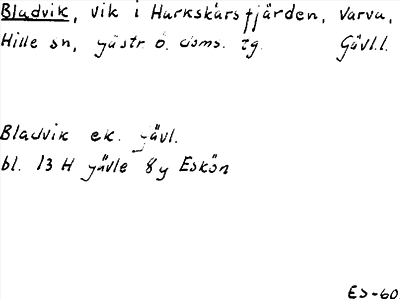 Bladvik, vik i Harkskärsfjärden, Varva,
Hille sn, gästr. ö. doms. tg. Gävl.l.
Bladvik ek. gävl.
bl. 13 H gävle 8y Eskön
ES-60